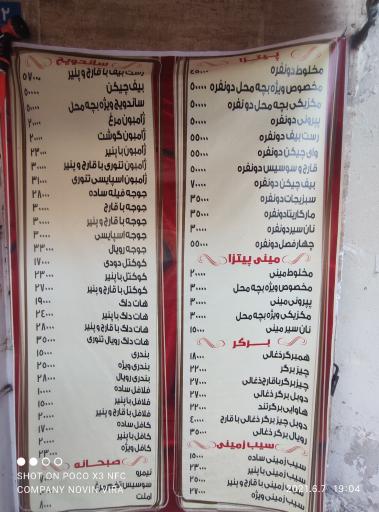 پیتزا
مخلوط دونفره ۴۵۰۰۰
مخصوص ویژه بچه محل دونفره ۵۰۰۰۰
مکزیکی بچه محل دونفره ۵۰۰۰۰
پپرونی دونفره ۵۰۰۰۰
رست بیف دونفره ۵۵۰۰۰
وای چیکن دونفره ۵۰۰۰۰
قارچ و سوسیس دونفره ۵۰۰۰۰
بیف چیکن دونفره ۷۰۰۰۰
سبزیجات دونفره ۳۵۰۰۰
مارگاریتا دونفره ۳۵۰۰۰
نان سیر دونفره ۳۰۰۰۰
چهارفصل دونفره ۵۵۰۰۰
مینی پیتزا
مخلوط مینی ۲۰۰۰۰
مخصوص ویژه بچه محل ۳۰۰۰۰
پپرونی مینی ۳۰۰۰۰
مکزیکی ویژه بچه محل ۳۰۰۰۰
نان سیر مینی ۱۵۰۰۰
برگر
همبرگر ذغالی ۱۸۰۰۰
چیز برگر ۲۲۰۰۰
چیز برگر با قارچ ذغالی ۲۷۰۰۰
دوبل برگر ذغالی ۲۷۰۰۰
هاوایی برگر تند ۲۲۰۰۰
دوبل چیز برگر ذغالی با قارچ ۴۰۰۰۰
رویال ذغالی ۳۵۰۰۰
سیب زمینی
سیب زمینی ساده ۱۵۰۰۰
سیب زمینی با پنیر ۲۳۰۰۰
سیب زمینی با قارچ و پنیر ۲۷۰۰۰
سیب زمینی ویژه
ساندویچ
رست بیف با قارچ و پنیر ۵۷۰۰۰
بیف چیکن ۵۰۰۰۰
ساندویچ ویژه بچه محل ۵۰۰۰۰
ژامبون مرغ ۲۰۰۰۰
ژامبون گوشت ۲۰۰۰۰
ژامبون با پنیر ۲۳۰۰۰
ژامبون تنوری با قارچ و پنیر ۳۰۰۰۰
ژامبون اسپایسی تنوری ۳۱۰۰۰
جوجه فیله ساده ۲۸۰۰۰
جوجه با قارچ ۳۰۰۰۰
جوجه با قارچ و پنیر ۳۰۰۰۰
جوجه اسپایسی ۳۰۰۰۰
جوجه رویال ۳۳۰۰۰
کوکتل دودی ۱۷۰۰۰
کوکتل با پنیر ۲۳۰۰۰
کوکتل با قارچ و پنیر ۲۷۰۰۰
هات داگ ۱۹۰۰۰
هات داگ با پنیر ۲۴۰۰۰
هات داگ با قارچ و پنیر ۲۸۰۰۰
هات داگ رویال تنوری ۳۵۰۰۰
بندری ۱۵۰۰۰
بندری ویژه ۲۵۰۰۰
بندری رویال ۲۸۰۰۰
فلافل ساده ۱۰۰۰۰
فلافل با پنیر ۱۵۰۰۰
فلافل با قارچ و پنیر ۲۰۰۰۰
کافل ساده ۱۷۰۰۰
کافل با پنیر ۲۰۰۰۰
کافل ویژه ۲۳۰۰۰
صبحانه
نیمرو
املت ۸۰۰۰
SHOT ON POCO X3 NFC
COMPANY NOVIN VIRA
2021.6.7 19:04